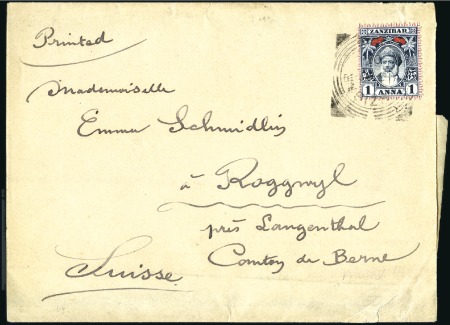 Printed
ZANZIBAR
1 ANNA 1
Mademoiselle
Emma Schmidlin
à Roggwyl
près Langenthal
Canton de Berne
Suisse